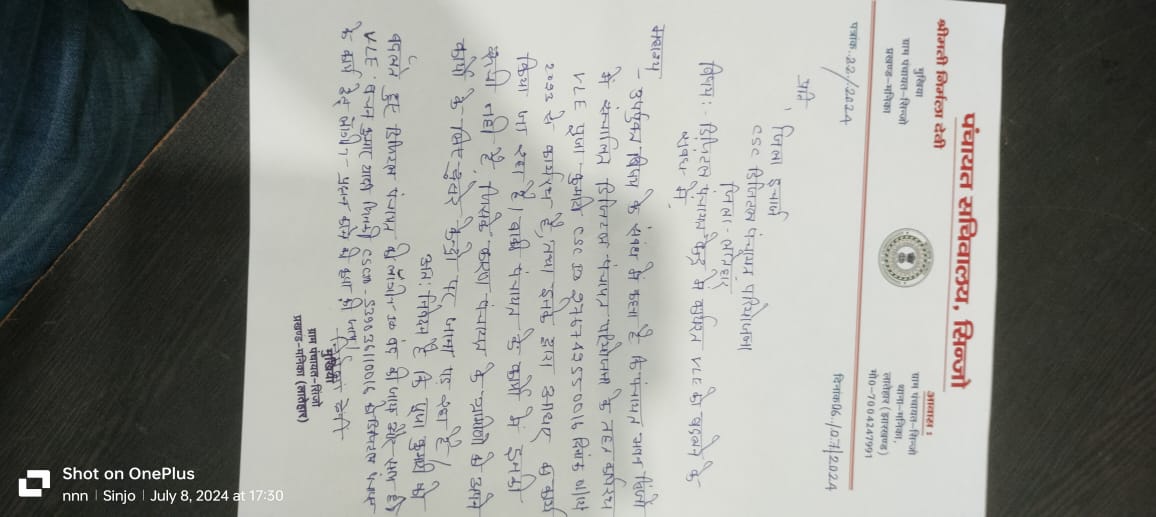 पंचायत सचिवालय, सिन्जो
श्रीमती निर्मला देवी
मुखिया
ग्राम पंचायत-सिन्जो
प्रखण्ड-मनिका
आवास :
ग्राम पंचायत-सिन्जो
थाना-मनिका,
लातेहार (झारखण्ड)
मो0-7004247991
पत्रांक..22/2024
दिनांक 06/07/2024
प्रति,
जिला प्रबंधक
CSC डिजिटल पंचायत परियोजना
जिला - लातेहार
विषय :- डिजिटल पंचायत केन्द्र में कार्यरत VLE को बदलने के
संबंध में।
महाशय
उपर्युक्त विषय के संबंध में कहना है कि पंचायत भवन सिन्जो
में संचालित डिजिटल पंचायत परियोजना के तहत कार्यरत
VLE पूजा कुमारी CSC ID 276743550016 दिसंबर माह
2022 से कार्यरत है, तथा इनके द्वारा आधार का कार्य
किया जा रहा है। बाकी पंचायत के कार्यों में इनकी
रूची नहीं है जिसके कारण पंचायत के ग्रामीणों को अपने
कार्यों के लिए दूसरे केन्द्रों पर जाना पड़ रहा है।
अतः निवेदन है कि पूजा कुमारी को
बदलते हुए डिजिटल पंचायत की लॉगिन ID बंद की जाय और साथ ही
VLE पवन कुमार यादव जिनकी CSC ID - 539036110016 को डिजिटल पंचायत
के कार्य हेतु लॉगिन प्रदान करने की कृपा की जाय।
निर्मला देवी
मुखिया
ग्राम पंचायत-सिंजो
प्रखण्ड-मनिका (लातेहार)
Shot on OnePlus
nnn | Sinjo | July 8, 2024 at 17:30